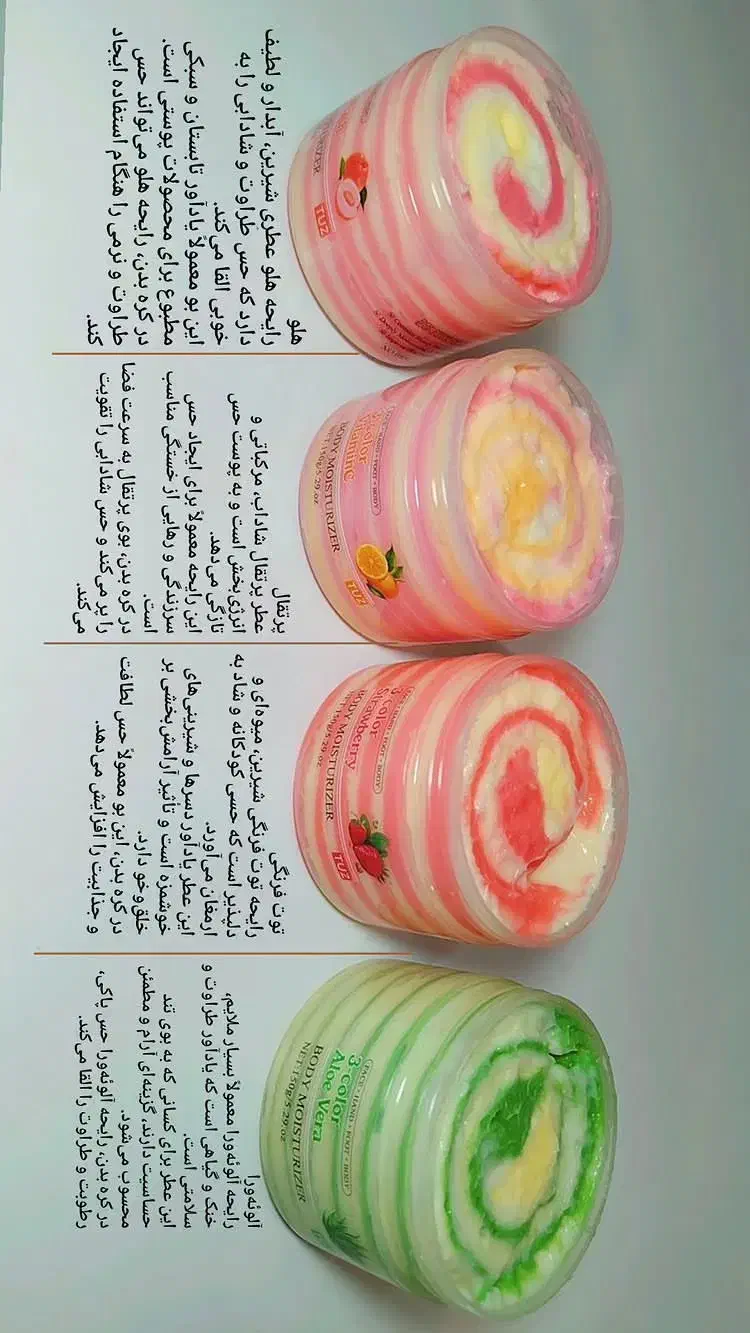 FACE • HAND • FOOT • BODY
3-color
Aloe Vera
BODY MOISTURIZER
NET:150g/5.29.oz
آلوئه‌ورا
رایحه آلوئه‌ورا معمولاً بسیار ملایم،
خنک و گیاهی است که یادآور طراوت و
سلامتی است.
این عطر برای کسانی که به بوی تند
حساسیت دارند، گزینه‌ای آرام و مطمئن
محسوب می‌شود.
در کره بدن، رایحه آلوئه‌ورا حس پاکی،
رطوبت و طراوت را القا می‌کند.
FACE • HAND • FOOT • BODY
3-color
Strawberry
BODY MOISTURIZER
NET:150g/5.29.oz
TUZ
توت فرنگی
رایحه توت فرنگی شیرین، میوه‌ای و
دلپذیر است که حسی کودکانه و شاد به
ارمغان می‌آورد.
این عطر یادآور دسرها و شیرینی‌های
خوشمزه است و تأثیر آرامش‌بخشی بر
خلق‌وخو دارد.
در کره بدن، این بو معمولاً حس لطافت
و جذابیت را افزایش می‌دهد.
FACE • HAND • FOOT • BODY
3-color
Vitamine
BODY MOISTURIZER
NET:150g/5.29.oz
TUZ
پرتقال
عطر پرتقال شاداب، مرکباتی و
انرژی‌بخش است و به پوست حس
تازگی می‌دهد.
این رایحه معمولاً برای ایجاد حس
سرزندگی و رهایی از خستگی مناسب
است.
در کره بدن، بوی پرتقال به سرعت فضا
را پر می‌کند و حس شادابی را تقویت
می‌کند.
TUZ
هلو
رایحه هلو عطری شیرین، آبدار و لطیف
دارد که حس طراوت و شادابی را به
خوبی القا می‌کند.
این بو معمولاً یادآور تابستان و سبکی
مطبوع برای محصولات پوستی است.
در کره بدن، رایحه هلو می‌تواند حس
طراوت و نرمی را هنگام استفاده ایجاد
کند.